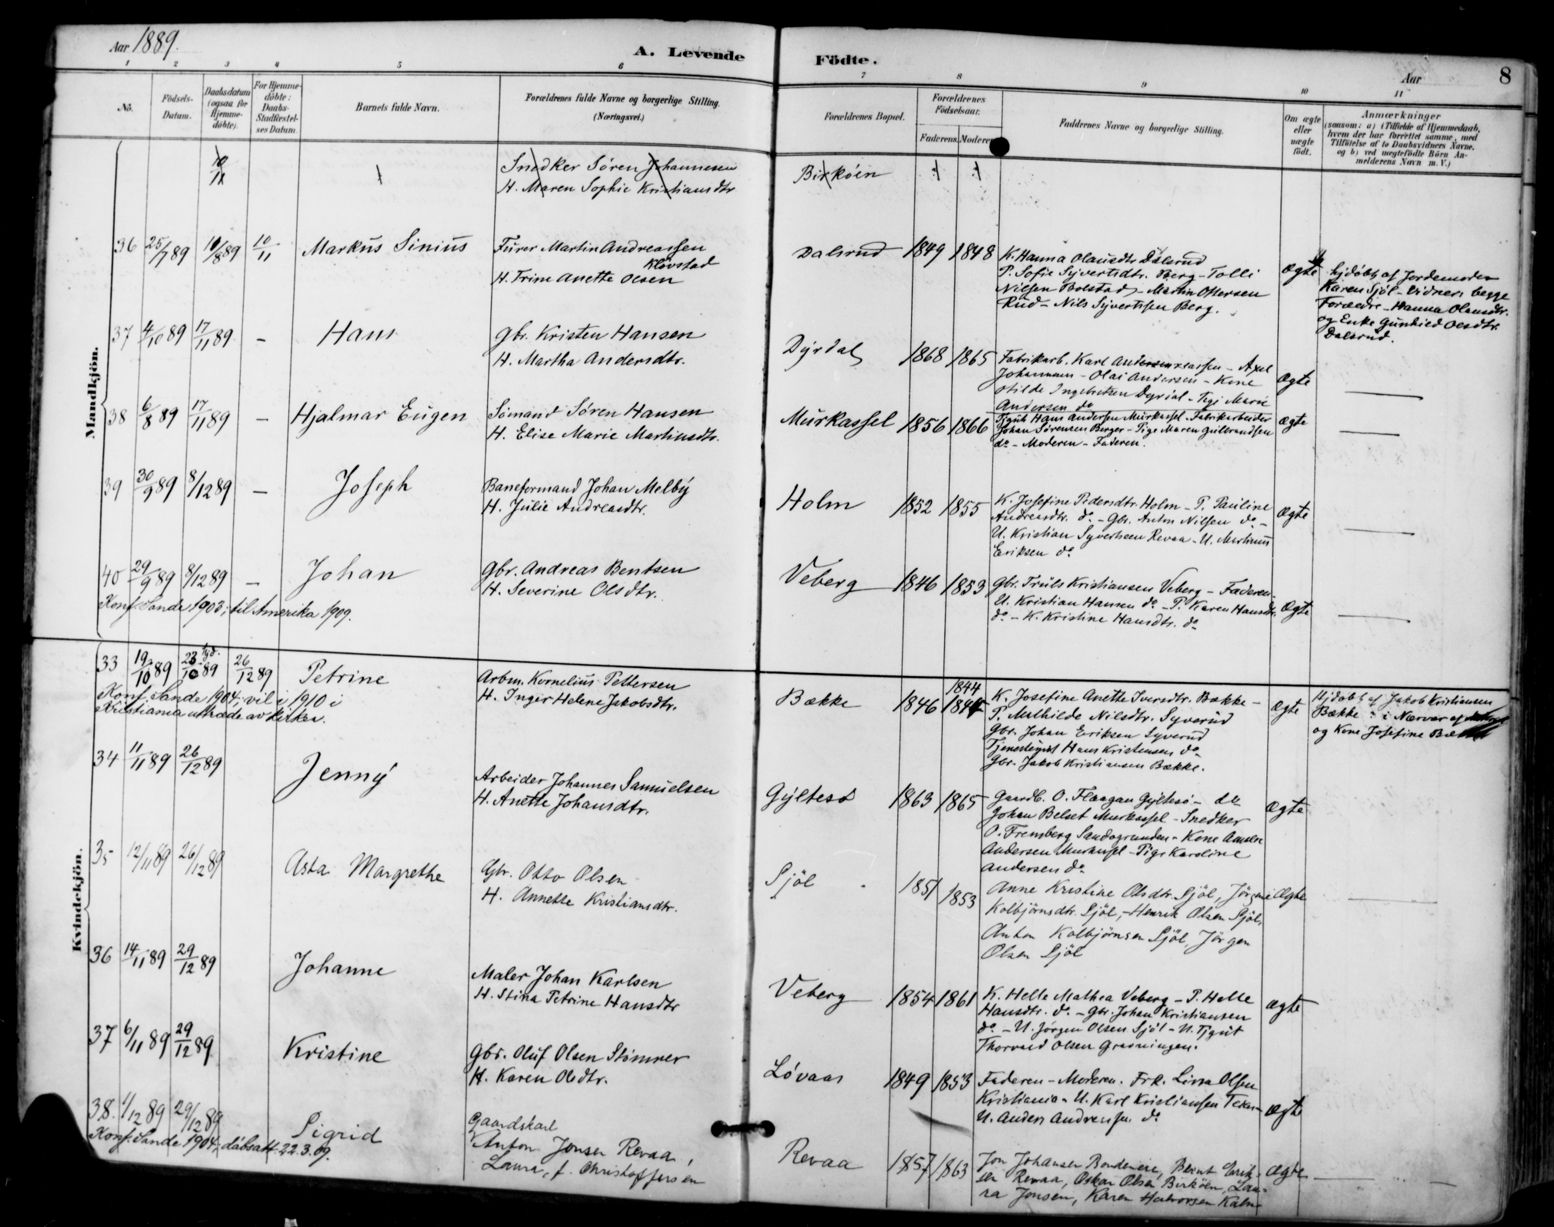 Aar 1889.
A. Levende Fødte.
Aar
8
1 2 3 4 5 6 7 8 9 10 11
No.
Fødsels-
Datum.
Daabsdatum
(ogsaa for
Hjemme-
døbte).
For Hjemme-
døbte:
Daabs-
Stadfæstel-
ses Datum.
Barnets fulde Navn.
Forældrenes fulde Navne og borgerlige Stilling.
(Næringsvei.)
Forældrenes Bopæl.
Forældrenes
Fødselsaar.
Faderens. Moderens.
Faddernes Navne og borgerlige Stilling.
Om ægte
eller
uægte
født.
Anmærkninger
(saasom: a) i Tilfælde af Hjemmedaab,
hvem der har forrettet samme, med
Tilføielse af to Daabsvidners Navne.
og b) ved uægtefødte Børn An-
melderens Navn m. V.)
Mandkjön.
Snedker Søren Johannesen
H. Maren Sophie Kristiansdtr
Birkøen
36 25/7 89 10/8 89 10/11 Markus Sinius
Furer Martin Andreassen
Klovstad
H. Trine Anette Olsen
Dalsrud 1849 1848
K. Hanna Olausdtr Dalsrud
P. Sofie Syvertsdtr. Berg - Tolli
Nilsen Bolstad - Martin Ottersen
Rud - Nils Syvertsen Berg.
Ægte
hjdøbt af Jordemoder
Karen Sjøl - Vidner: begge
Forældre - Hanna Olausdtr.
og Enke Gunhild Olsdtr.
Dalsrud.
37 4/10 89 17/11 89 - Hans
Gbr. Kristen Hansen
H. Martha Andersdtr.
Dyrdal 1868 1865
Fabrikarb. Karl - Axel
Johannesen - Olai Andersen - Kone
Otilde Ingebretsen Dyrdal - Pige Marie
Andersen do
Ægte
38 6/8 89 17/11 89 - Hjalmar Eugen
Sømand Søren Hansen
H. Elise Marie Martinsdtr.
Murkassel 1856 1866
Tjgut Hans Andersen Murkassel - Fabrikarbeider
Johan Sørensen Berger - Pige Maren Gulbrandsen
do - Moderen - Faderen.
Ægte
39 30/9 89 8/12 89 - Joseph
Baneformand Johan Melby
H. Julie Andreasdtr.
Holm 1852 1855
K. Josefine Pedersdtr. Holm - P. Pauline
Andreasdtr. do - Gbr. Anton Nilsen do -
U. Kristian Syversen Revaa - U. Martinus
Eriksen do
Ægte
40 29/9 89 8/12 89 - Johan
Gbr. Andreas Bentsen
H. Severine Olsdtr.
Veberg 1846 1853
Gbr. Truls Kristiansen Veberg - Faderen -
U. Kristian Hansen do - P. Karen Hansdtr.
do - K. Kristine Hansdtr. do
Ægte
Konf. Sande 1903; til Amerika 1909.
Kvindekjön.
33 19/10 89 23/10 89 26/12 89 Petrine
Arbm. Kornelius Pettersen
H. Inger Helene Jakobsdtr.
Bække 1846 1844
K. Josefine Anette Iversdtr. Bække -
P. Mathilde Nilsdtr. Syverud
Gbr. Johan Eriksen Syverud
Tjenestegut Hans Kristensen do
Gbr. Jakob Kristiansen Bække.
Ægte
Hjdøbt af Jakob Kristiansen
Bække i Nærvær af
og Kone Josefine
Konf. Sande 1904; vil i 1910 i
Kristiania utræde av kirken.
34 11/11 89 26/12 89 Jenny
Arbeider Johannes Samuelsen
H. Anette Johansdtr.
Gyltesø 1863 1865
Gaardb. O. Flaagan Gyltesø - do
Johan Belset Murkassel - Snedker
O. Fremberg Sandsgrunden - Kone
Andersen Murkassel - Pige Karoline
Andersen do
Ægte
35 12/11 89 26/12 89 Asta Margrethe
Gbr. Otto Olsen
H. Annette Kristiansdtr.
Sjöl 1851 1853
Anne Kristine Olsdtr. Sjöl, Jörgine
Kolbjörnsdtr. Sjöl, Henrik Olsen Sjöl,
Anton Kolbjörnsen Sjöl, Jörgen
Olsen Sjöl
Ægte
36 14/11 89 29/12 89 Johanne
Maler Johan Karlsen
H. Stina Petrine Hansdtr
Veberg 1854 1861
K. Helle Mathea Veberg - P. Helle
Hansdtr. do - Gbr. Johan Kristiansen
do - U. Jørgen Olsen Sjøl - U. Tjgut
Thorvald Olsen Grønningen.
Ægte
37 6/11 89 29/12 89 Kristine
Gbr. Oluf Olsen Stømner
H. Karen Olsdtr.
Løvaas 1849 1853
Faderen - Moderen. Frk. Lina Olsen
Kristiania - U. Karl Kristiansen
U. Anders Andersen do
Ægte
38. 1/12 89 29/12 89 Sigrid
Gaardskarl
Anton Jonsen Revaa,
Laura, f. Christoffersen
Revaa 1857 1863
Jon Johansen Bondeneie, Bernt Erik-
sen Revaa, Oskar Olsen Birkøen, Lau-
ra Jonsen, Karen Halvorsen
Ægte
Konf. Sande 1904; dåbsatt. 22.3.09.